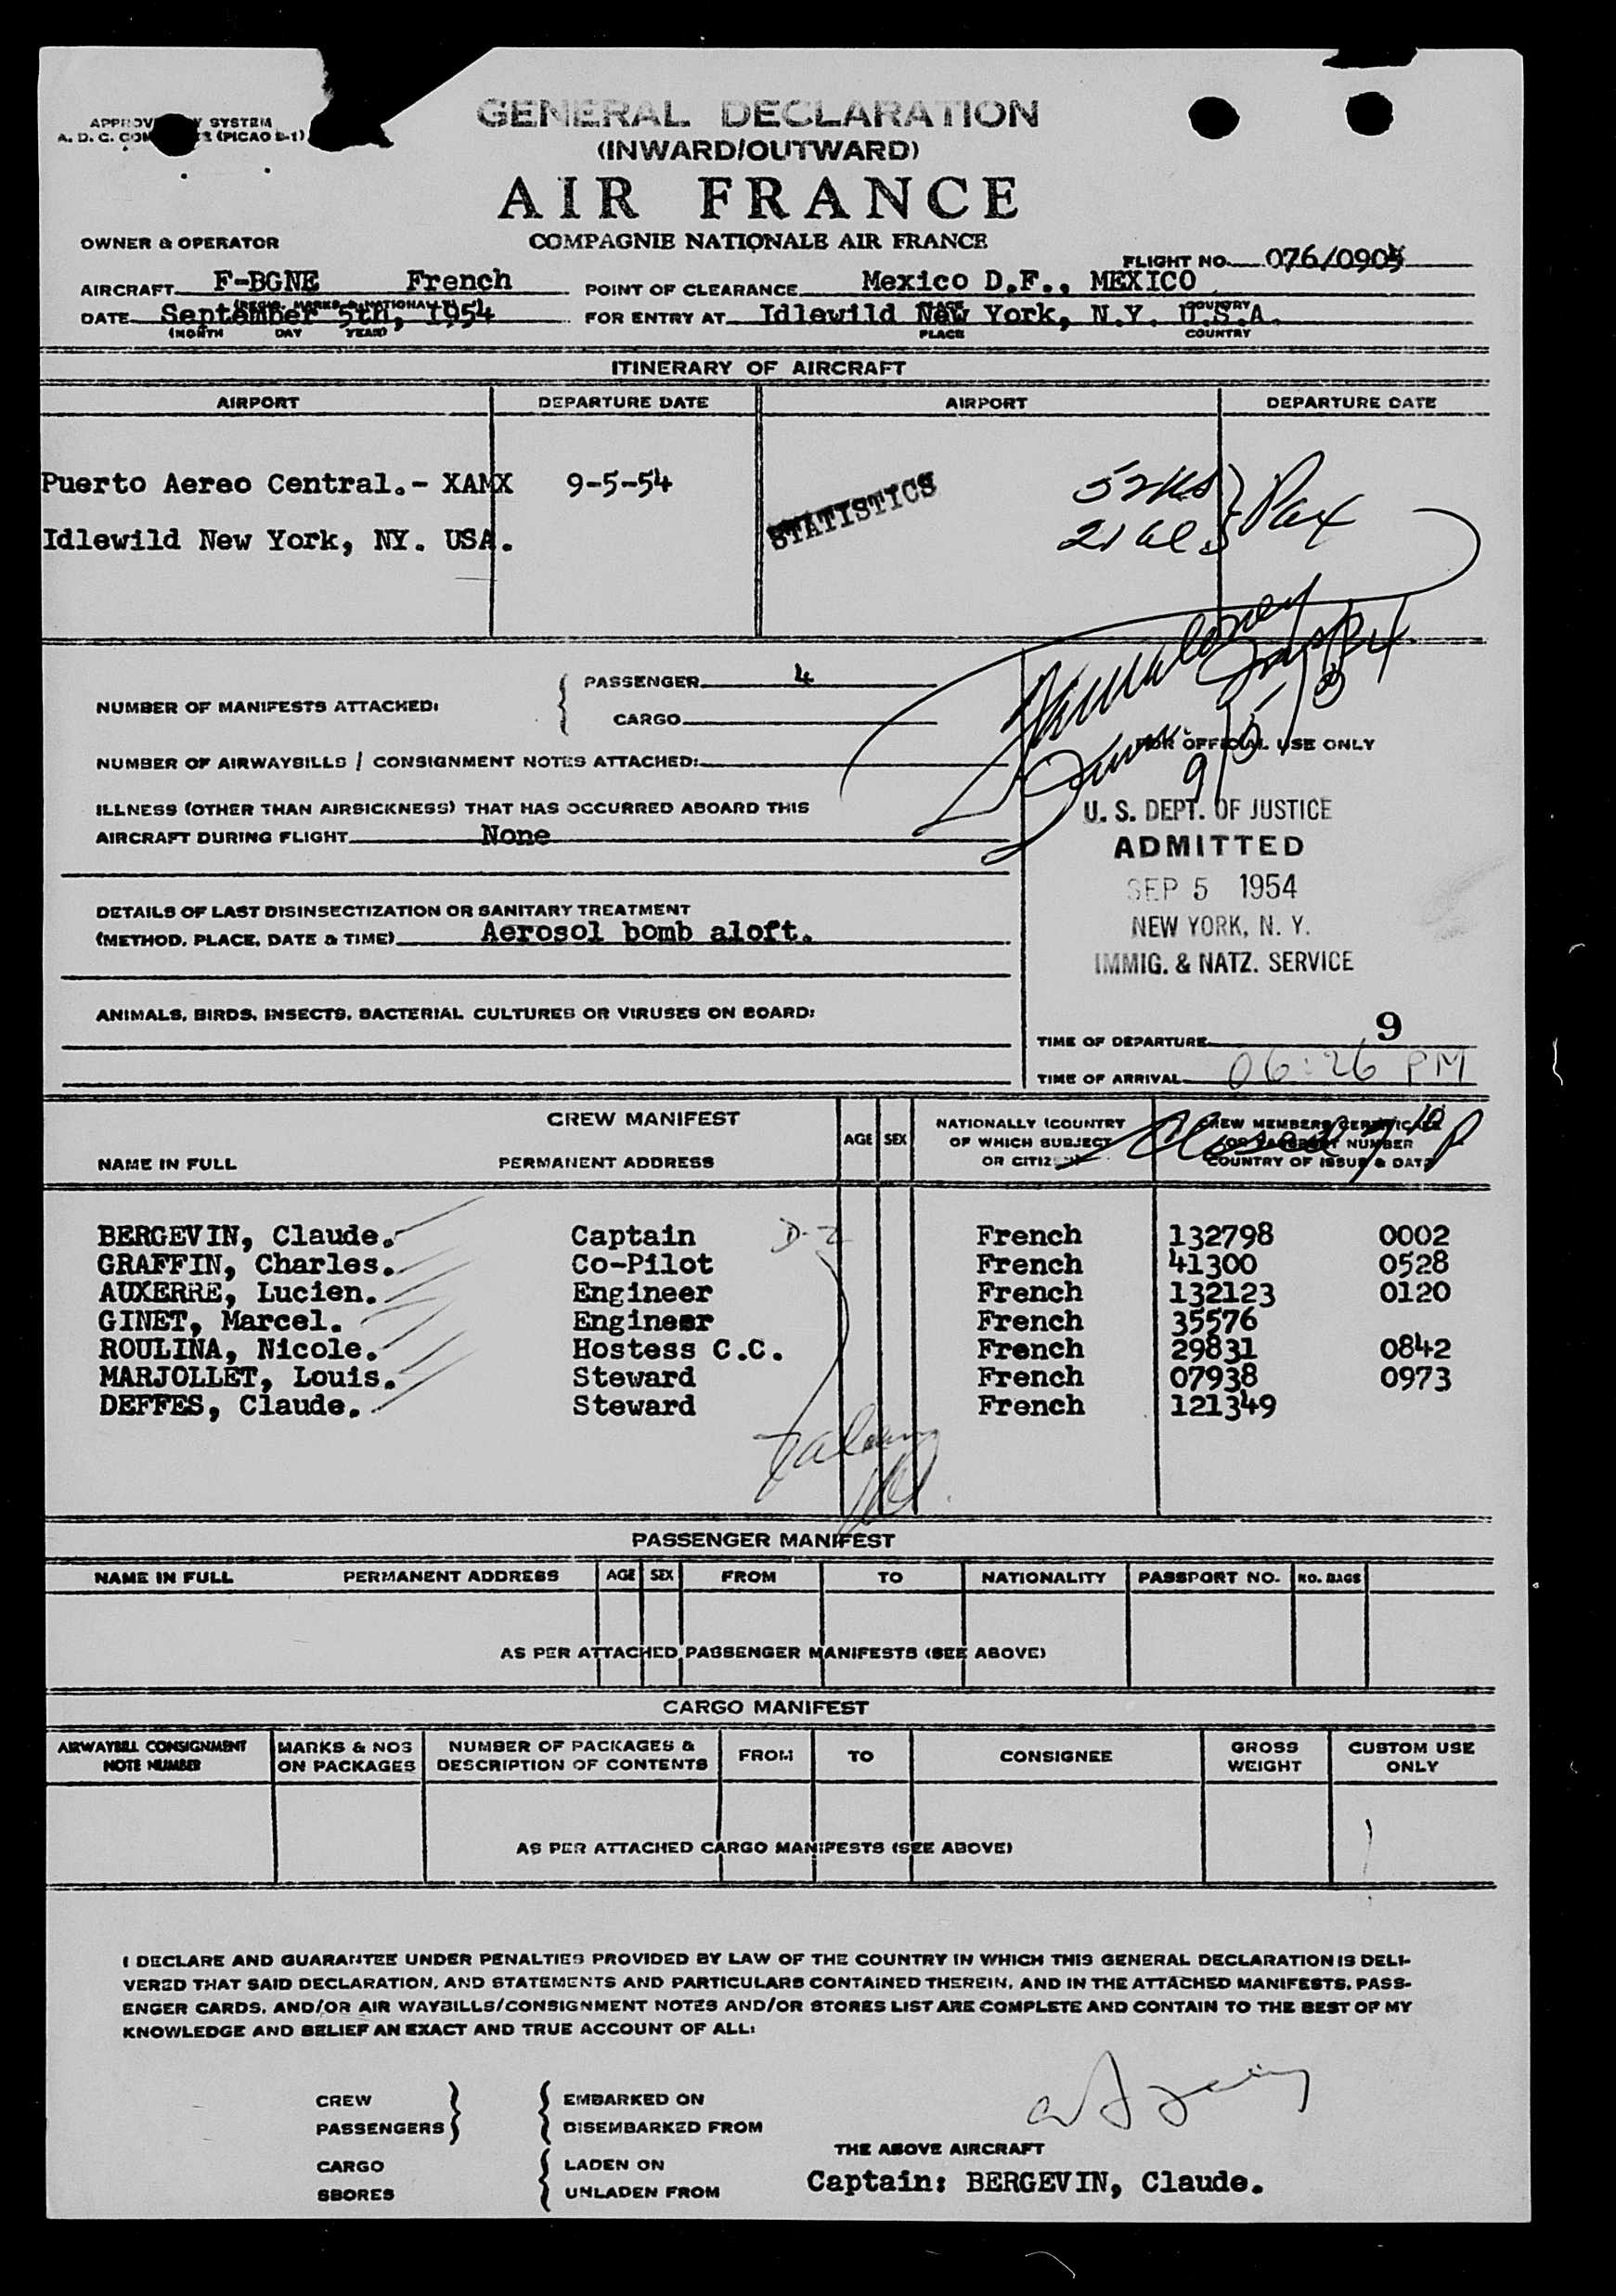 GENERAL DECLARATION
(INWARD/OUTWARD)
AIR FRANCE
COMPAGNIE NATIONALE AIR FRANCE
SYSTEM
A. D. C. (PICAO E-1)
OWNER & OPERATOR
FLIGHT NO. 076/0905
AIRCRAFT F-BGNE French POINT OF CLEARANCE Mexico D.F., MEXICO
(REGIS. MARKS & NATIONALITY) PLACE COUNTRY
DATE September 5th, 1954 FOR ENTRY AT Idlewild New York, N.Y. U.S.A.
(MONTH DAY YEAR) PLACE COUNTRY
ITINERARY OF AIRCRAFT
AIRPORT DEPARTURE DATE AIRPORT DEPARTURE DATE
Puerto Aereo Central.- XAMX 9-5-54 STATISTICS 52 US
Idlewild New York, NY. USA. 21 al Pax
NUMBER OF MANIFESTS ATTACHED:
PASSENGER 4
CARGO
NUMBER OF AIRWAYBILLS / CONSIGNMENT NOTES ATTACHED:
ILLNESS (OTHER THAN AIRSICKNESS) THAT HAS OCCURRED ABOARD THIS
AIRCRAFT DURING FLIGHT None
DETAILS OF LAST DISINSECTIZATION OR SANITARY TREATMENT
(METHOD, PLACE, DATE & TIME) Aerosol bomb aloft.
ANIMALS, BIRDS, INSECTS, BACTERIAL CULTURES OR VIRUSES ON BOARD:
FOR OFFICIAL USE ONLY
U. S. DEPT. OF JUSTICE
ADMITTED
SEP 5 1954
NEW YORK, N. Y.
IMMIG. & NATZ. SERVICE
9
TIME OF DEPARTURE
TIME OF ARRIVAL 06:26 PM
CREW MANIFEST
NAME IN FULL PERMANENT ADDRESS AGE SEX NATIONALLY (COUNTRY OF WHICH SUBJECT OR CITIZEN) CREW MEMBERS CERTIFICATE OR PASSPORT NUMBER COUNTRY OF ISSUE & DATE
BERGEVIN, Claude. Captain D-2 French 132798 0002
GRAFFIN, Charles. Co-Pilot French 41300 0528
AUXERRE, Lucien. Engineer French 132123 0120
GINET, Marcel. Engineer French 35576
ROULINA, Nicole. Hostess C.C. French 29831 0842
MARJOLLET, Louis. Steward French 07938 0973
DEFFES, Claude. Steward French 121349
PASSENGER MANIFEST
NAME IN FULL PERMANENT ADDRESS AGE SEX FROM TO NATIONALITY PASSPORT NO. NO. BAGS
AS PER ATTACHED PASSENGER MANIFESTS (SEE ABOVE)
CARGO MANIFEST
AIRWAYBILL CONSIGNMENT NOTE NUMBER MARKS & NOS ON PACKAGES NUMBER OF PACKAGES & DESCRIPTION OF CONTENTS FROM TO CONSIGNEE GROSS WEIGHT CUSTOM USE ONLY
AS PER ATTACHED CARGO MANIFESTS (SEE ABOVE)
I DECLARE AND GUARANTEE UNDER PENALTIES PROVIDED BY LAW OF THE COUNTRY IN WHICH THIS GENERAL DECLARATION IS DELI-
VERED THAT SAID DECLARATION, AND STATEMENTS AND PARTICULARS CONTAINED THEREIN, AND IN THE ATTACHED MANIFESTS, PASS-
ENGER CARDS, AND/OR AIR WAYBILLS/CONSIGNMENT NOTES AND/OR STORES LIST ARE COMPLETE AND CONTAIN TO THE BEST OF MY
KNOWLEDGE AND BELIEF AN EXACT AND TRUE ACCOUNT OF ALL:
CREW EMBARKED ON
PASSENGERS DISEMBARKED FROM
THE ABOVE AIRCRAFT
CARGO LADEN ON
SBORES UNLADEN FROM
Captain: BERGEVIN, Claude.